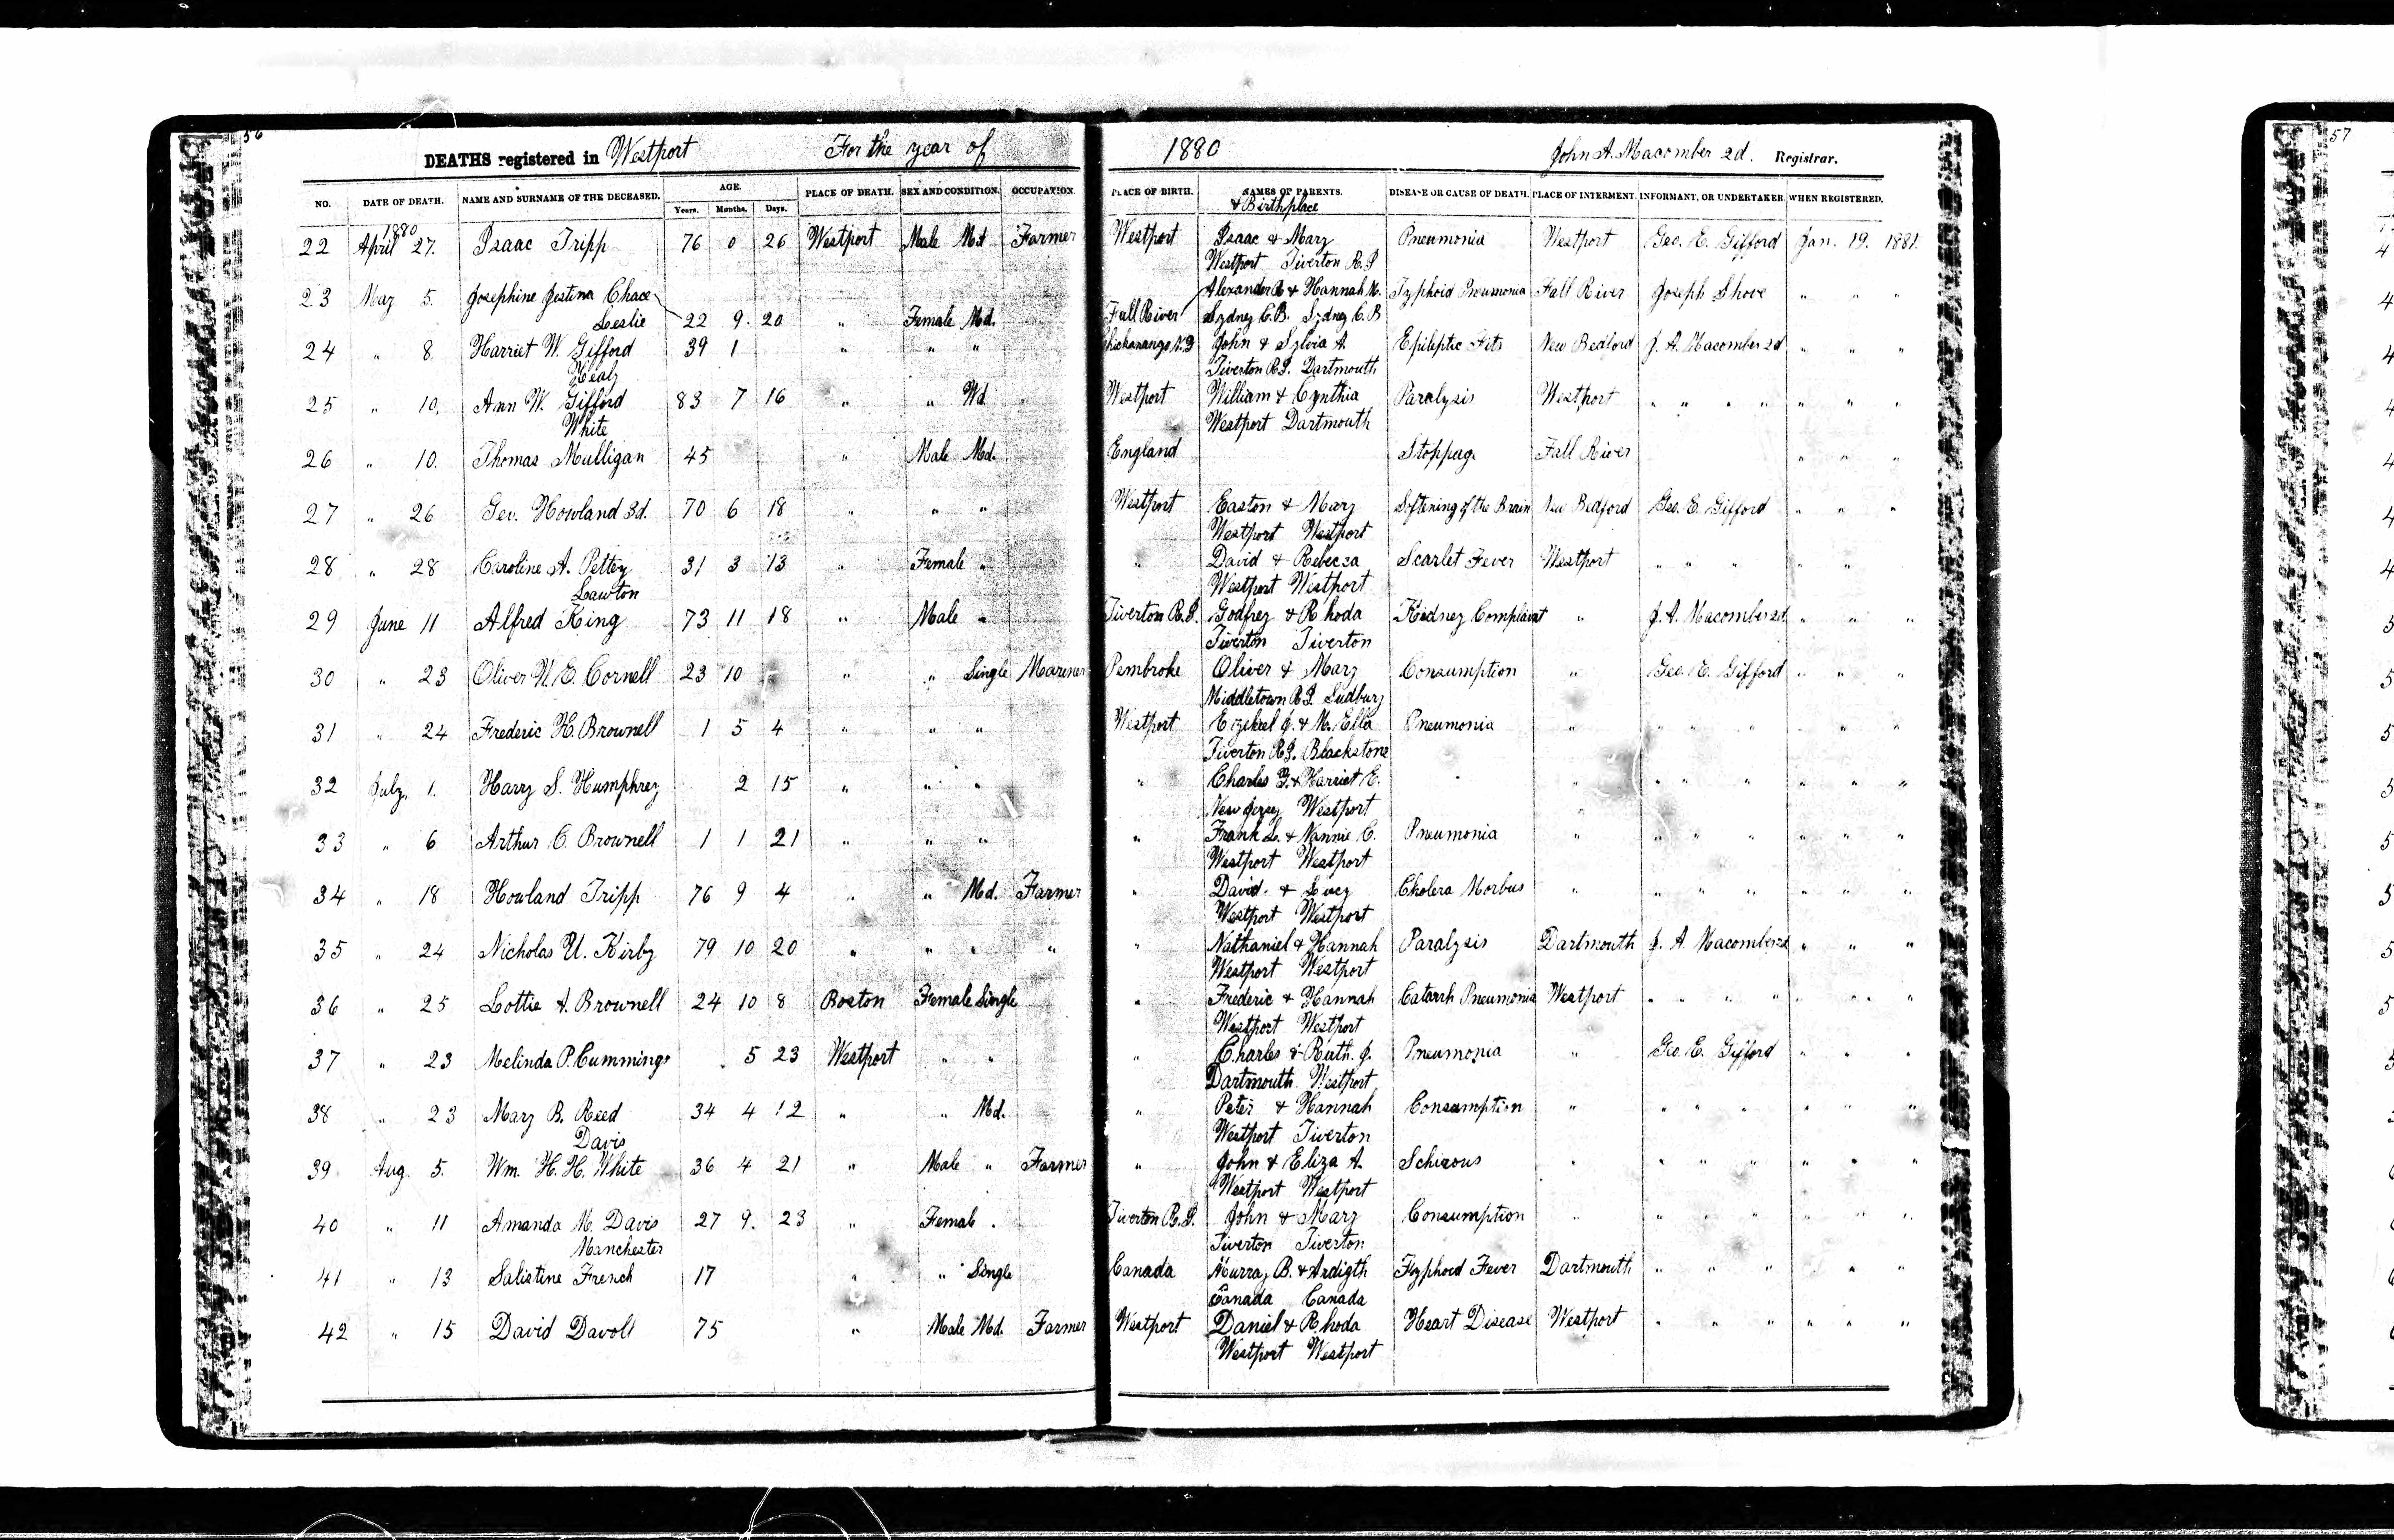 56
DEATHS registered in Westport For the year of 1880 John A. Macomber 2d. Registrar.
NO. DATE OF DEATH. NAME AND SURNAME OF THE DECEASED. AGE. PLACE OF DEATH. SEX AND CONDITION. OCCUPATION. PLACE OF BIRTH. NAMES OF PARENTS. DISEASE OR CAUSE OF DEATH. PLACE OF INTERMENT. INFORMANT, OR UNDERTAKER. WHEN REGISTERED.
Years. Months. Days. & Birthplace
1880
22 April 27. Isaac Tripp 76 0 26 Westport Male Md Farmer Westport Isaac & Mary Pneumonia Westport Geo. E. Gifford Jan. 19. 1881.
Westport Tiverton R.I
23 May 5. Josephine Jestina Chace Alexander R & Hannah M. Typhoid Pneumonia Fall River Joseph Shove " " "
Leslie 22 9. 20 " Female Md. Fall River Sydney C.B. Sydney C.B
24 " 8. Harriet W. Gifford 39 1 " " " John & Sylvia A. Epileptic Fits New Bedford J. A. Macomber 2d " " "
Healy Tiverton R.I. Dartmouth
25 " 10. Ann W. Gifford 83 7 16 " " Wd. Westport William & Cynthia Paralysis Westport " " " " " " "
White Westport Dartmouth
26 " 10. Thomas Mulligan 45 " Male Md. England Stoppage Fall River " " "
27 " 26 Geo. Howland 3d. 70 6 18 " " " Westport Easton & Mary Softening of the Brain New Bedford Geo. E. Gifford " " "
Westport Westport
28 " 28 Caroline A. Pettey 31 3 13 " Female " " David & Rebecca Scarlet Fever Westport " " " " "
Lawton Westport Westport
29 June 11 Alfred King 73 11 18 " Male " Tiverton R.I. Godfrey & Rhoda Kidney Complaint " J. A. Macomber 2d. " " "
Tiverton Tiverton
30 " 23 Oliver N. E. Cornell 23 10 " " Single Mariner Pembroke Oliver & Mary Consumption " Geo. E. Gifford " " "
Middletown R.I. Sudbury
31 " 24 Frederic H. Brownell 1 5 4 " " " Westport Ezekeel J. & M. Ella Pneumonia " " " " " " "
Tiverton R.I. Blackstone
32 July 1. Harry S. Humphrey 2 15 " " " " Charles & Harriet E. " " " " " " " "
New Jersey Westport
33 " 6 Arthur C. Brownell 1 1 21 " " " " Frank L. & Nannie C. Pneumonia " " " " " " "
Westport Westport
34 " 18 Howland Tripp 76 9 4 " " Md. Farmer " David & Lucy Cholera Morbus " " " " " " "
Westport Westport
35 " 24 Nicholas U. Kirby 79 10 20 " " " " " Nathaniel & Hannah Paralysis Dartmouth J. A Macomber 2d " " "
Westport Westport
36 " 25 Lottie A. Brownell 24 10 8 Boston Female Single " Frederic & Hannah Catarrh Pneumonia Westport " " " " " " "
Westport Westport
37 " 23 Melinda P. Cummings 5 23 Westport " " " Charles & Ruth. J. Pneumonia " Geo. E. Gifford " " "
Dartmouth Westport
38 " 23 Mary B. Reed 34 4 12 " " Md. " Peter & Hannah Consumption " " " " " " "
Davis Westport Tiverton
39 Aug. 5. Wm. H. H. White 36 4 21 " Male " Farmer " John & Eliza A. Schirous " " " " " " "
Westport Westport
40 " 11 Amanda M. Davis 27 9. 23 " Female " Tiverton R.I. John & Mary Consumption " " " " " " "
Manchester Tiverton Tiverton
41 " 13 Salistine French 17 " " Single Canada Murray B. & Ardigth Typhoid Fever Dartmouth " " " " " "
Canada Canada
42 " 15 David Davoll 75 " Male Md. Farmer Westport Daniel & Rhoda Heart Disease Westport " " " " " "
Westport Westport
57